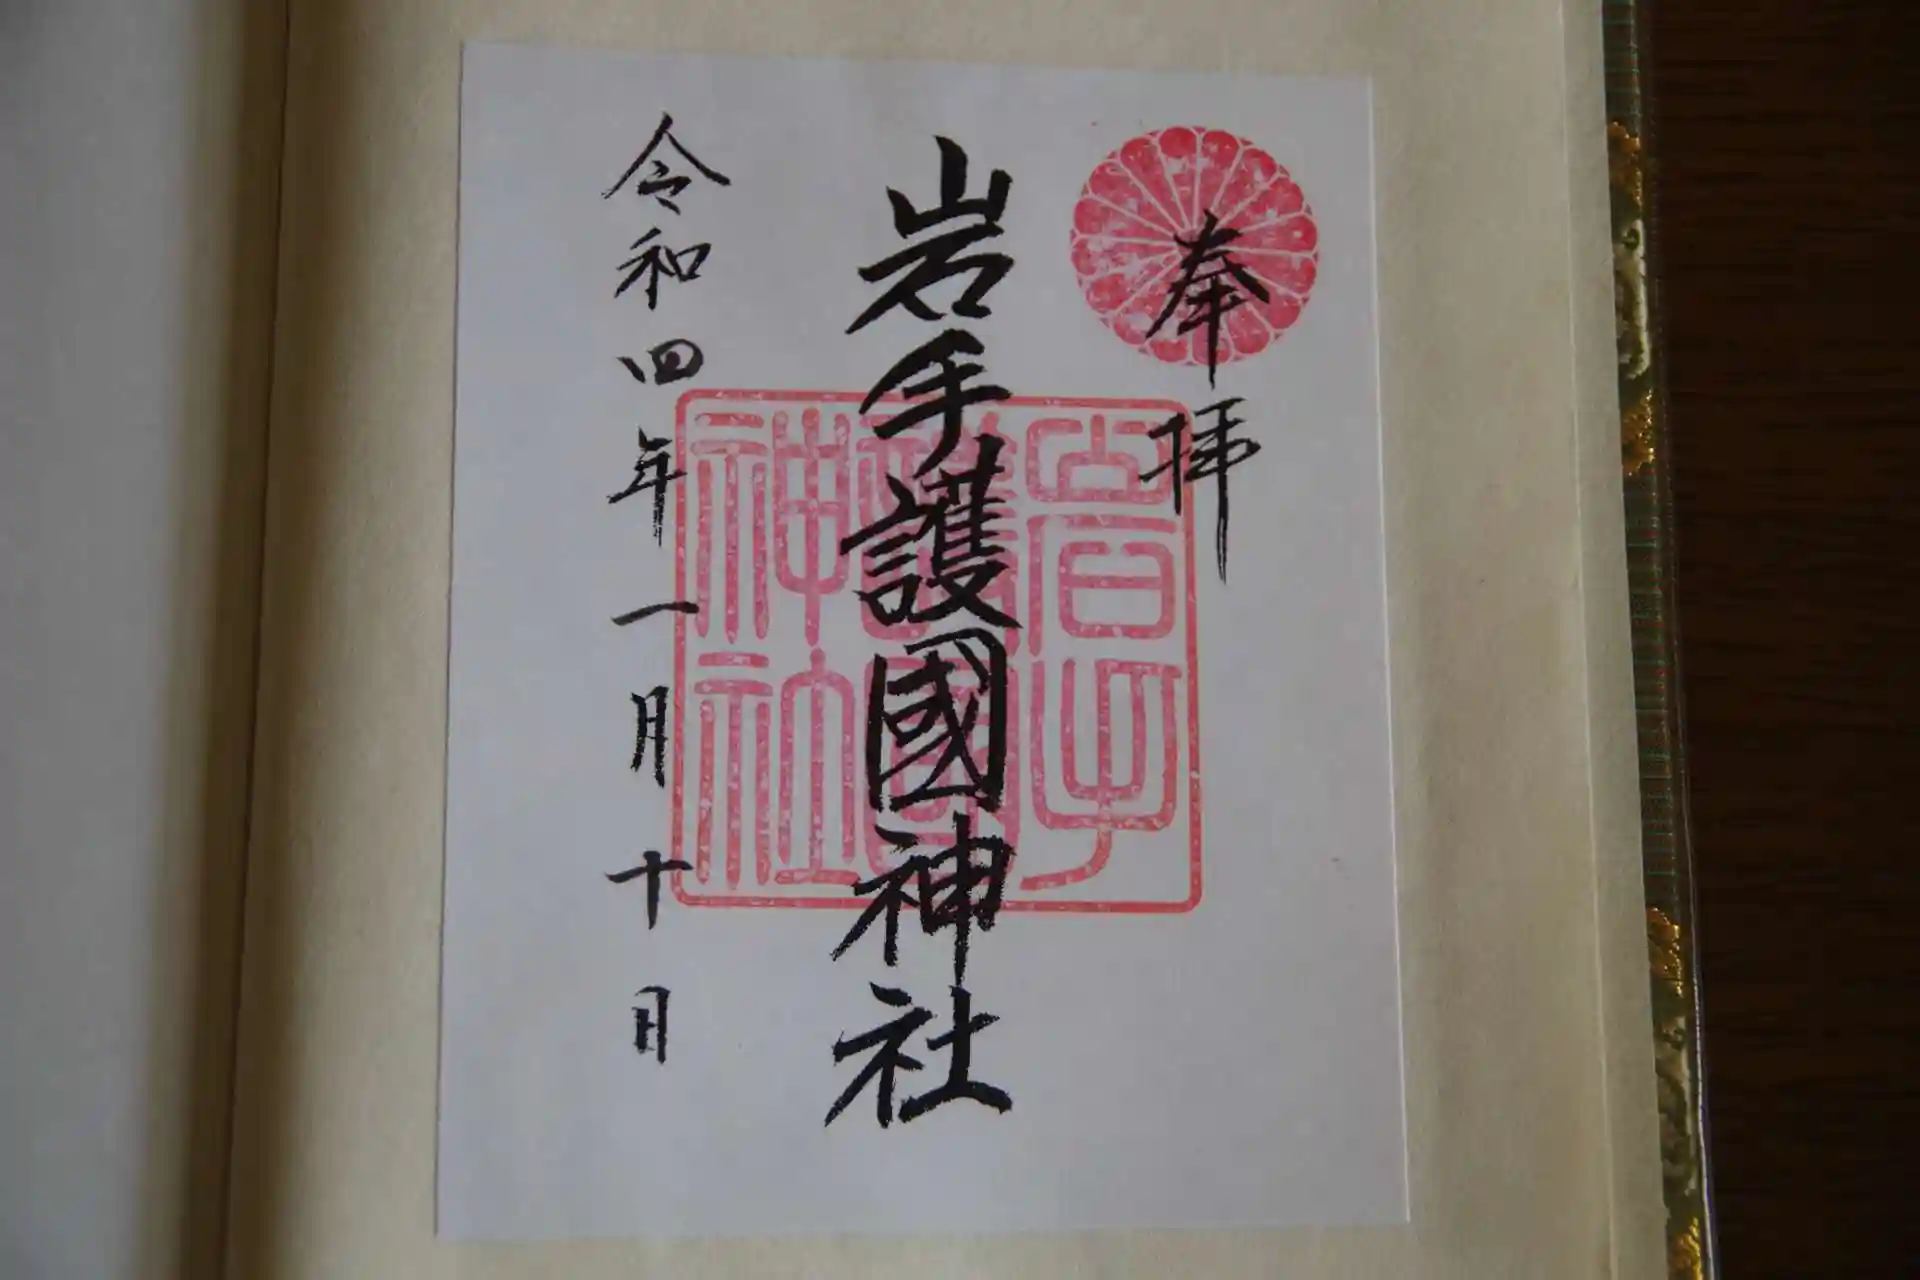 奉拝
岩手護國神社
令和四年一月十日
岩手護國神社